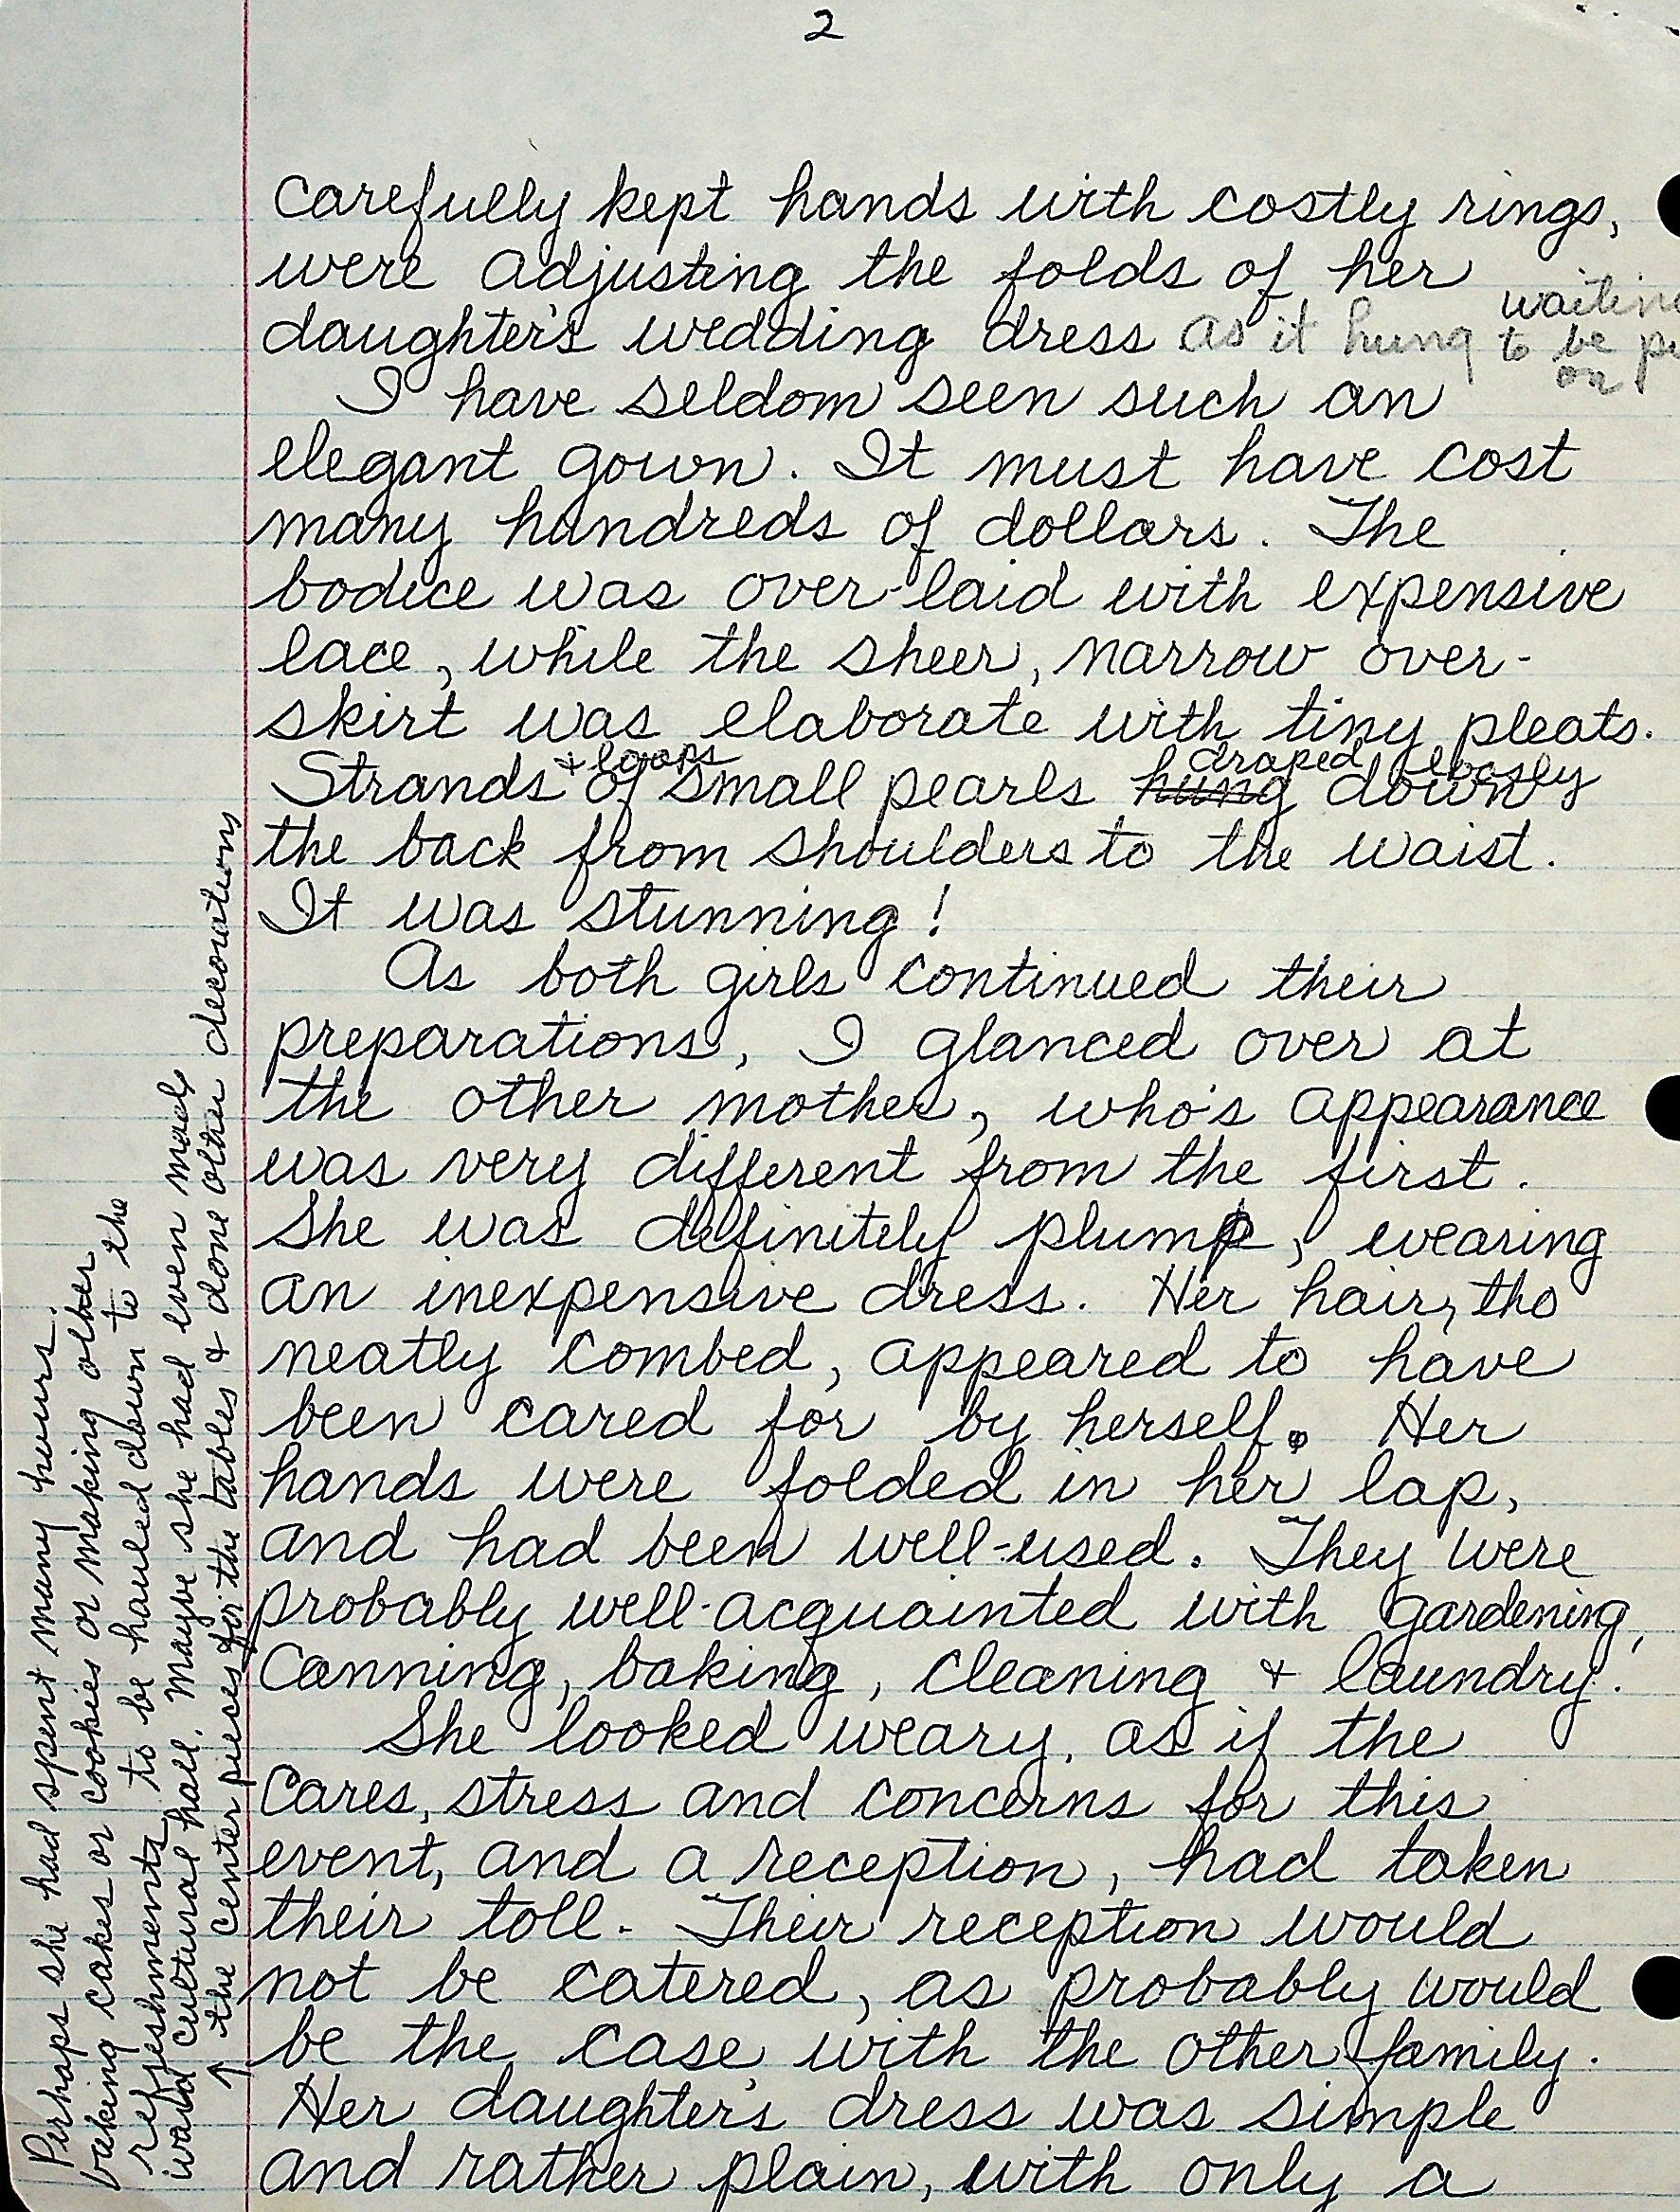 2
carefully kept hands with costly rings,
were adjusting the folds of her
daughter's wedding dress as it hung waiting
to be
on
I have seldom seen such an
elegant gown. It must have cost
many hundreds of dollars. The
bodice was over-laid with expensive
lace, while the sheer, narrow over-
skirt was elaborate with tiny pleats.
+ loops draped loosely
Strands of small pearls hung down
the back from shoulders to the waist.
It was stunning!
As both girls continued their
preparations, I glanced over at
the other mother, who's appearance
was very different from the first.
She was definitely plump, wearing
an inexpensive dress. Her hair, tho
neatly combed, appeared to have
been cared for by herself. Her
hands were folded in her lap,
and had been well-used. They were
probably well-acquainted with gardening,
canning, baking, cleaning + laundry.
She looked weary, as if the
cares, stress and concerns for this
event, and a reception, had taken
their toll. Their reception would
not be catered, as probably would
be the case with the other family.
Her daughter's dress was simple
and rather plain, with only a
Perhaps she had spent many hours
baking cakes or cookies or making other
refreshments to be hauled down to the
ward cultural hall. Maybe she had even made
↑ the center pieces for the tables + done other decorations